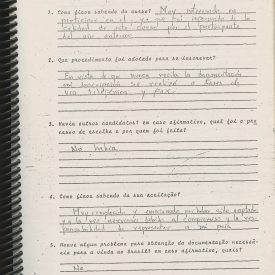 1. Como ficou sabendo do curso? Muy interesado en
participar en el, ya que fui informado de la
calidad de este curso por el participante
del año anterior.
2. Que procedimento foi adotado para se inscrever?
En vista de que nunca recibí la documentación
mi inscripción se realizó a través de
vía telefónica y fax.
3. Havia outros candidatos? em caso afirmativo, qual foi o pro
cesso de escolha e por quem foi feito?
No había.
4. Como ficou sabendo da sua aceitação?
Muy complacido y emocionado por haber sido aceptado
y a la vez nervioso debido al compromiso y la res-
ponsabilidad de representar a mi país
5. Houve algum problema para obtenção da documentação necessá-
ria para a vinda ao Brasil? em caso afirmativo, quais?
No